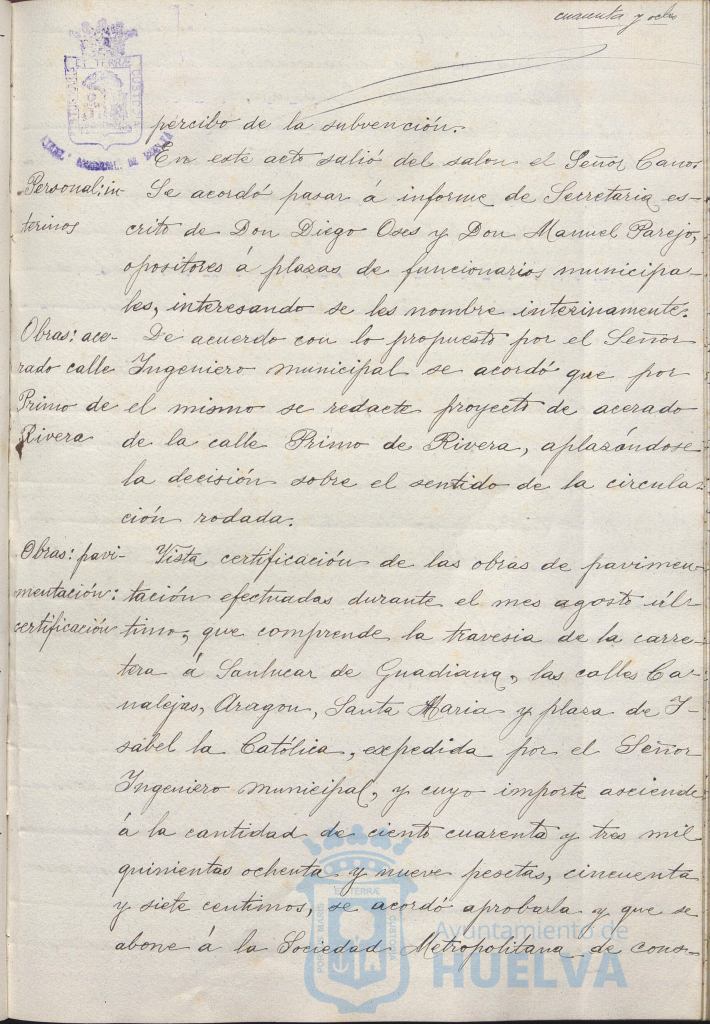 cuarenta y ocho
percibo de la subvención.
En este acto salió del salon el Señor Cano.
Personal: in-
terinos
Se acordó pasar á informe de Secretaria es-
crito de Don Diego Oses y Don Manuel Parejo,
opositores á plazas de funcionarios municipa-
les, interesando se les nombre interinamente.
Obras: ace-
rado calle
Primo de
Rivera
De acuerdo con lo propuesto por el Señor
Ingeniero municipal se acordó que por
el mismo se redacte proyecto de acerado
de la calle Primo de Rivera, aplazándose
la decisión sobre el sentido de la circula-
ción rodada.
Obras: pavi-
mentación:
certificación
Vista certificación de las obras de pavimen-
tación efectuadas durante el mes agosto úl-
timo, que comprende la travesia de la carre-
tera á Sanlucar de Guadiana, las calles Ca-
nalejas, Aragon, Santa Maria y plaza de I-
sabel la Católica, expedida por el Señor
Ingeniero municipal, y cuyo importe asciende
á la cantidad de ciento cuarenta y tres mil
quinientas ochenta y nueve pesetas, cincuenta
y siete centimos, se acordó aprobarla y que se
abone á la Sociedad Metropolitana de cons-
Ayuntamiento de
HUELVA